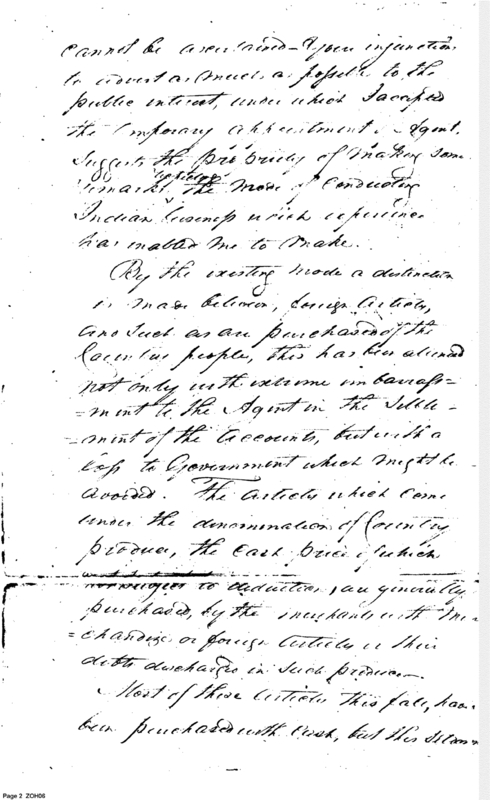 cannot be ascertained – Your injunction
to advert as much as possible to the
public interest, under which I accepted
the temporary appointment of Agent.
Suggests the propriety of making some
remarks the mode of Conducting
Indian business which experience
has enabled me to make.
By the existing mode a distinction
is made between, foreign Articles,
and such as are purchased of the
Country people, this has been attended
not only with extreme embarrass=
=ment to the Agent in the Settle-
=ment of the Accounts, but with a
loss to Government which might be
avoided. The articles which come
under the denomination of Country
produce, the Cash price of which
to deduction, are generally
purchased, by the merchants with Mer
=chandize or foreign Articles or their
debts discharged in such produce –
Most of these Articles this fall, have
been purchased with Cash, but this
Page 2 ZOH06